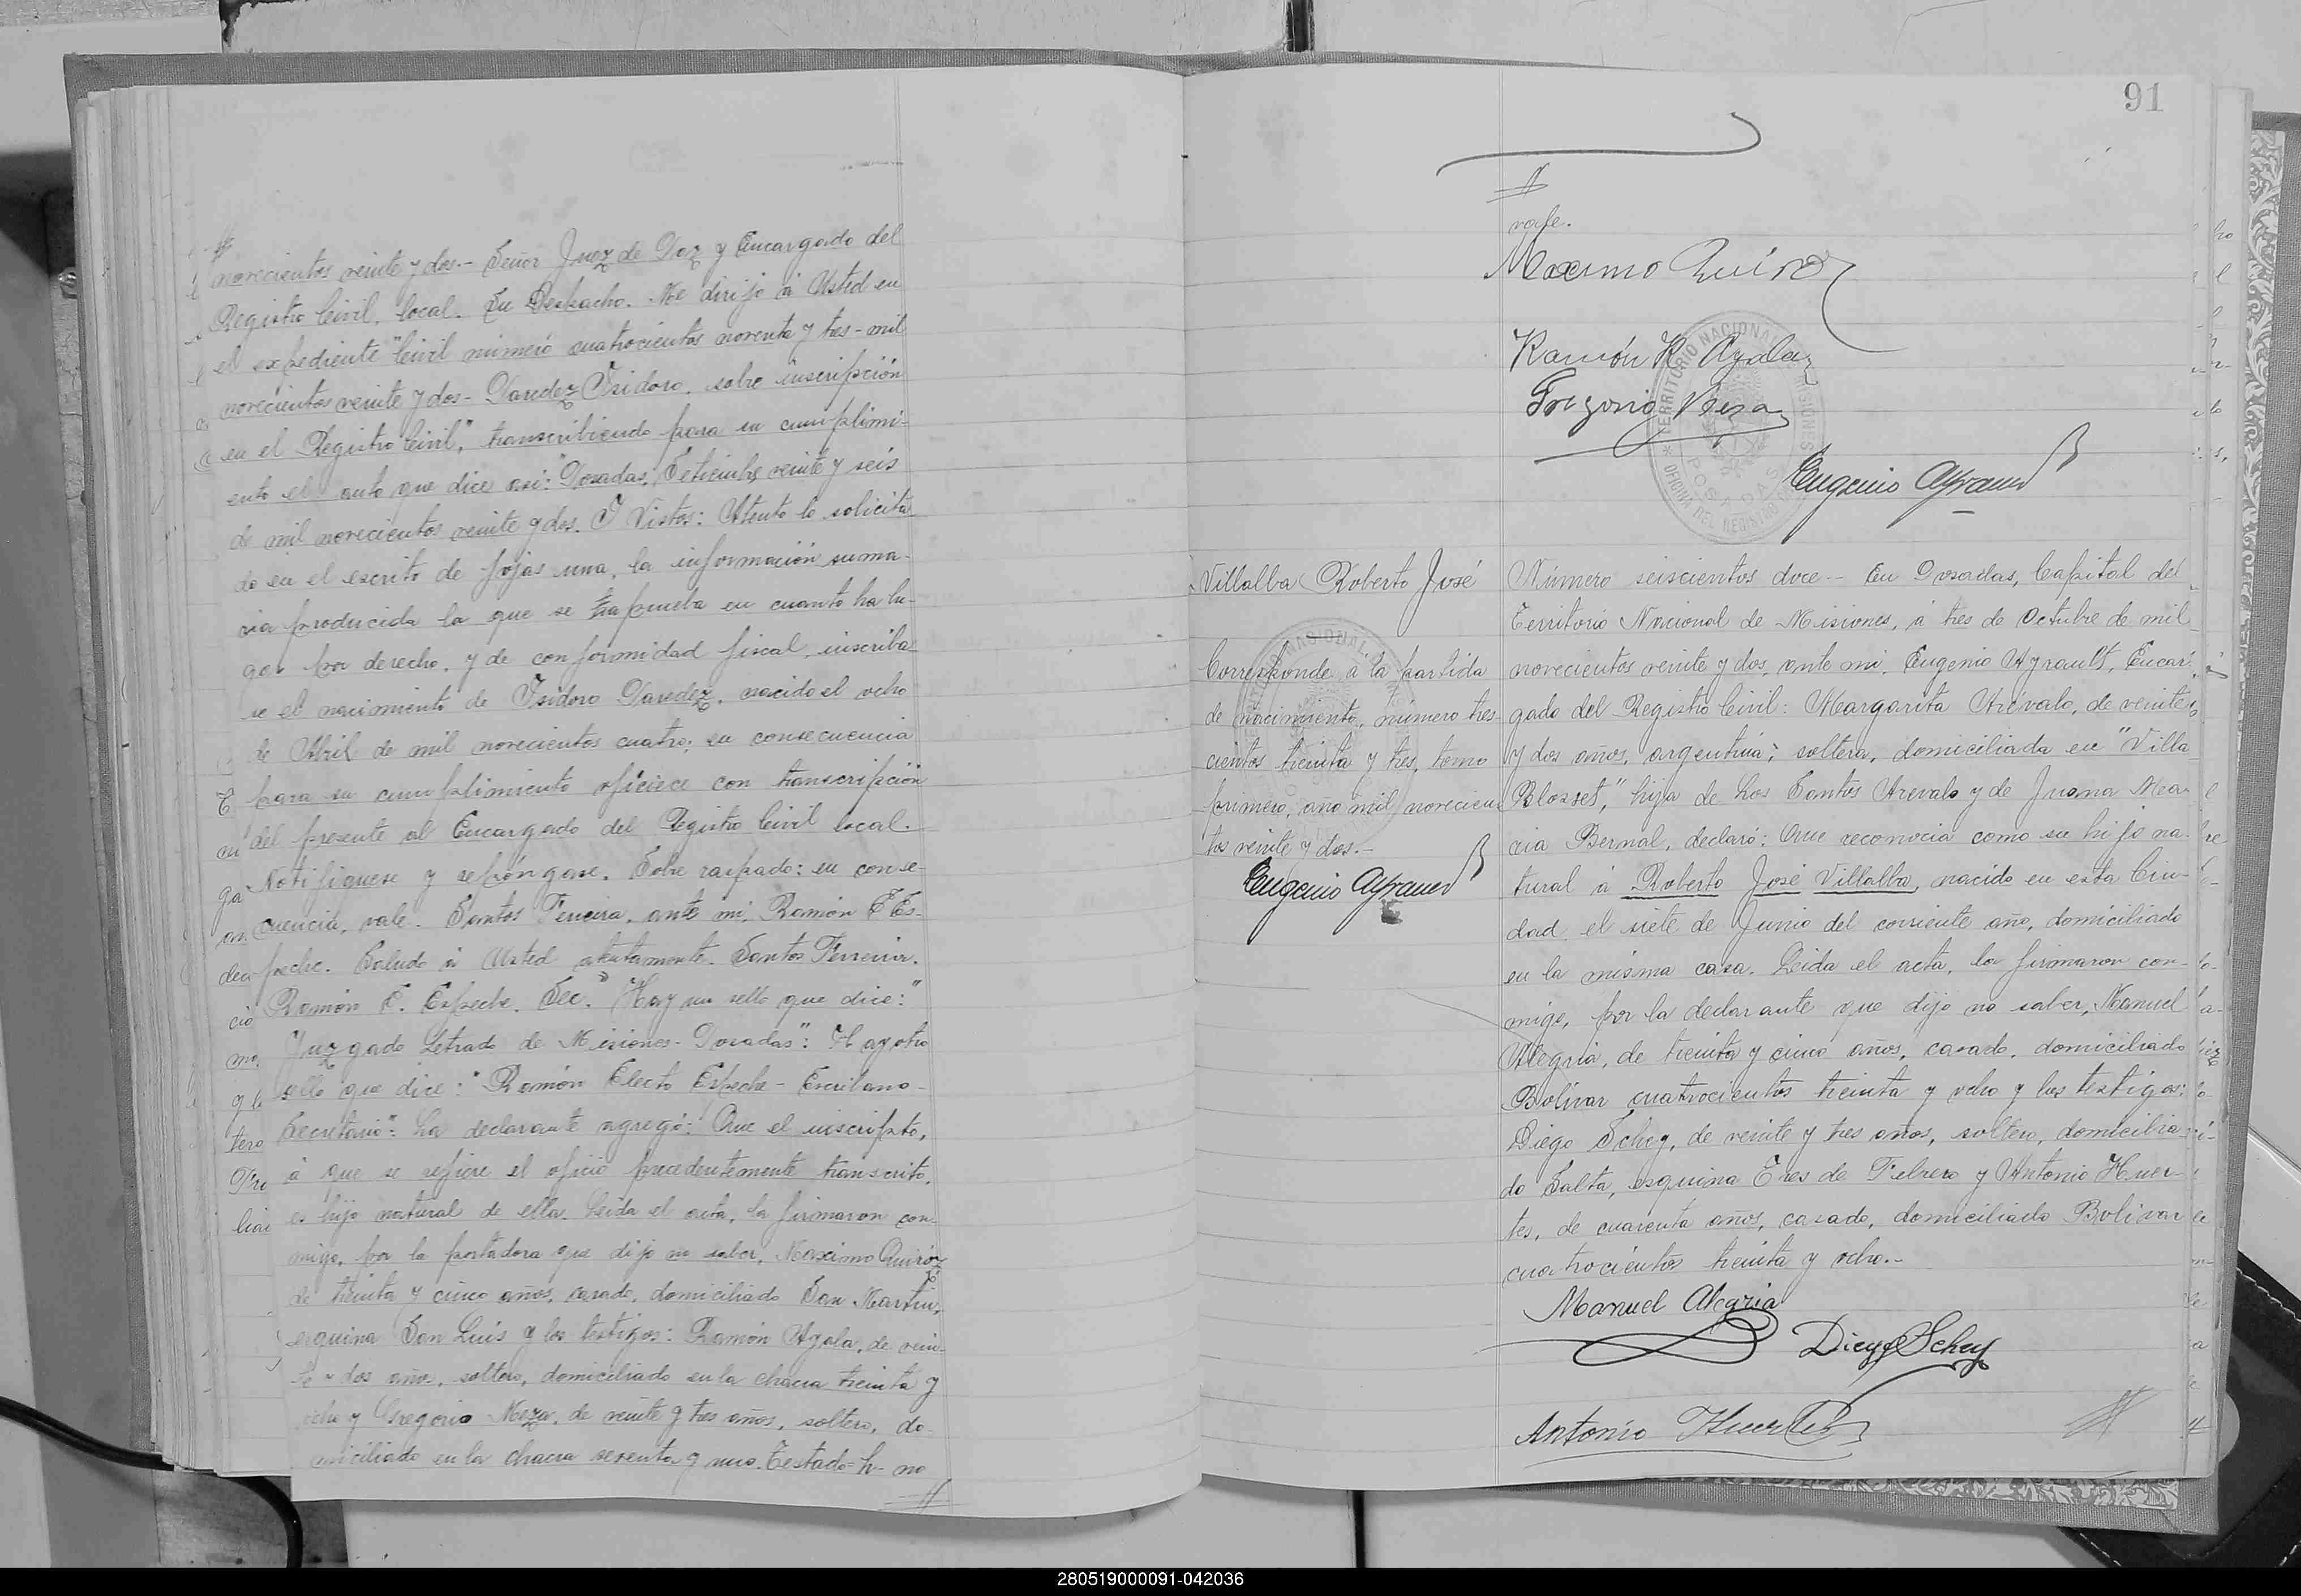 #
novecientos veinte y dos.- Señor Juez de Paz y Encargado del
Registro Civil, local. Su Despacho. Me dirijo á Usted en
el expediente "Civil número cuatrocientos noventa y tres - mil
novecientos veinte y dos - Paredez Isidoro, sobre inscripción
en el Registro Civil," transcribiendo para su cumplimi-
ento el auto que dice asi: "Posadas, Setiembre veinte y seis
de mil novecientos veinte y dos. I Vistos: Atento lo solicita-
do en el escrito de fojas una, la información suma-
ria producida la que se haprueba en cuanto ha lu-
gar por derecho, y de conformidad fiscal, inscriba-
se el nacimiento de Isidoro Paredez, nacido el ocho
de Abril de mil novecientos cuatro; en consecuencia
para su cumplimiento oficiece con transcripción
del presente al Encargado del Registro Civil local.
Notifiquese y repóngase. Sobre raspado: en conse-
cuencia, vale. Santos Ferreira, ante mi, Ramón E Es-
peche. Saludo á Usted atentamente. Santos Ferreira.
Ramón E. Espeche. Sec." Hay un sello que dice:"
Juzgado Letrado de Misiones - Posadas": Hay otro
sello que dice: "Ramón Electo Espeche - Escribano -
Secretario": La declarante agregó: Que el inscripto,
á que se refiere el oficio precedentemente transcrito,
es hijo natural de ella. Leida el acta, la firmaron con-
migo, por la portadora que dijo no saber, Maximo Quiróz
de treinta y cinco años, casado, domiciliado San Martin,
esquina San Luis y los testigos: Ramón Ayala, de vein-
te y dos años, soltero, domiciliado en la chacra treinta y
ocho y Gregorio Meza, de veinte y tres años, soltero, do-
miciliado en la chacra sesenta y uno. Testado=h- no
#
91
#
vale.
Maximo Quiroz
Ramón R Ayala
Gregorio Meza
TERRITORIO NACIONAL MISIONES
POSADAS
OFICINA DEL REGISTRO CIVIL
Eugenio Ayrault
Villalba Roberto José
Corresponde á la partida
de nacimiento, número tres-
cientos treinta y tres, tomo
primero, año mil novecien-
tos veinte y dos.-
Eugenio Ayrault
Número seiscientos doce.- En Posadas, Capital del
Territorio Nacional de Misiones, á tres de Octubre de mil
novecientos veinte y dos, ante mi, Eugenio Ayrault, Encar-
gado del Registro Civil: Margarita Arévalo, de veinte
y dos años, argentina, soltera, domiciliada en "Villa
Blosset," hija de Los Santos Arevalo y de Juana Ma-
ria Bernal, declaró: Que reconocia como su hijo na-
tural á Roberto José Villalba, nacido en esta Ciu-
dad, el siete de Junio del corriente año, domiciliado
en la misma casa. Leida el acta, la firmaron con-
migo, por la declarante que dijo no saber, Manuel
Alegria, de treinta y cinco años, casado, domiciliado
Bolivar cuatrocientos treinta y ocho y los testigos:
Diego Schey, de veinte y tres años, soltero, domicilia-
do Salta, esquina Tres de Febrero y Antonio Huer-
tes, de cuarenta años, casado, domiciliado Bolivar
cuatrocientos treinta y ocho.-
Manuel Alegria
Diego Schey
Antonio Huertes
#
280519000091-042036